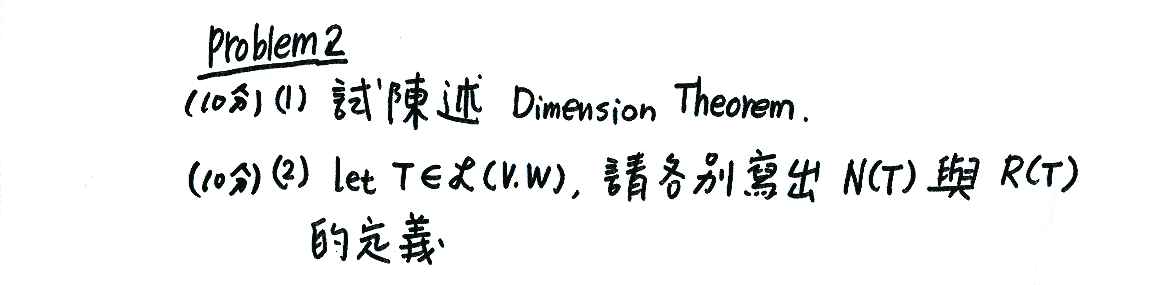 Problem 2
(10分) (1) 試陳述 Dimension Theorem.
(10分) (2) let T ∈ ℒ(V.W), 請各別寫出 N(T) 與 R(T)
的定義.